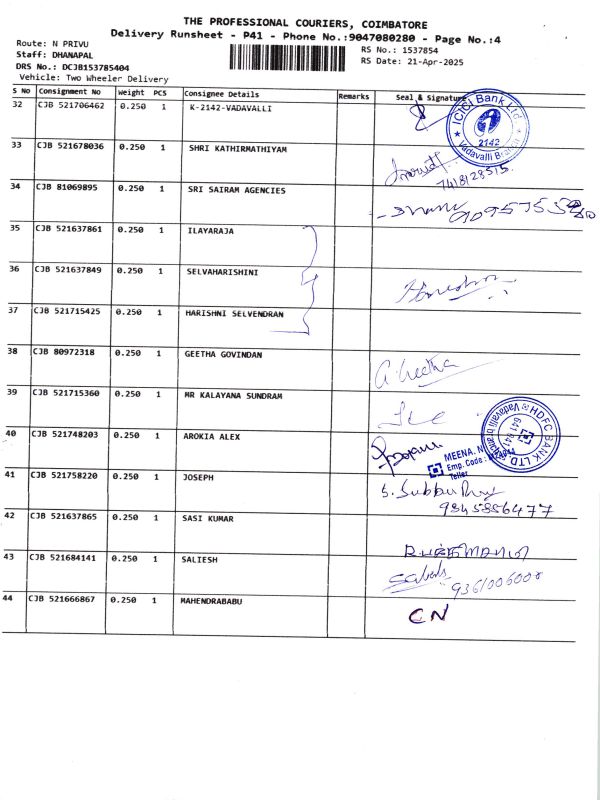 THE PROFESSIONAL COURIERS, COIMBATORE
Delivery Runsheet - P41 - Phone No.:9047080280 - Page No.:4
Route: N PRIVU
Staff: DHANAPAL
DRS No.: DCJB153785404
Vehicle: Two Wheeler Delivery
RS No.: 1537854
RS Date: 21-Apr-2025
S No Consignment No Weight PCS Consignee Details Remarks Seal & Signature
32 CJB 521706462 0.250 1 K-2142-VADAVALLI
ICICI Bank Ltd
2142
Vadavalli Branch
33 CJB 521678036 0.250 1 SHRI KATHIRMATHIYAM
7418128515
34 CJB 81069895 0.250 1 SRI SAIRAM AGENCIES
35 CJB 521637861 0.250 1 ILAYARAJA
36 CJB 521637849 0.250 1 SELVAHARISHINI
37 CJB 521715425 0.250 1 HARISHNI SELVENDRAN
38 CJB 80972318 0.250 1 GEETHA GOVINDAN
39 CJB 521715360 0.250 1 MR KALAYANA SUNDRAM
HDFC BANK LTD
Vadavalli
40 CJB 521748203 0.250 1 AROKIA ALEX
MEENA. N
Emp. Code :
Teller
41 CJB 521758220 0.250 1 JOSEPH
9845886477
42 CJB 521637865 0.250 1 SASI KUMAR
43 CJB 521684141 0.250 1 SALIESH
44 CJB 521666867 0.250 1 MAHENDRABABU
CN